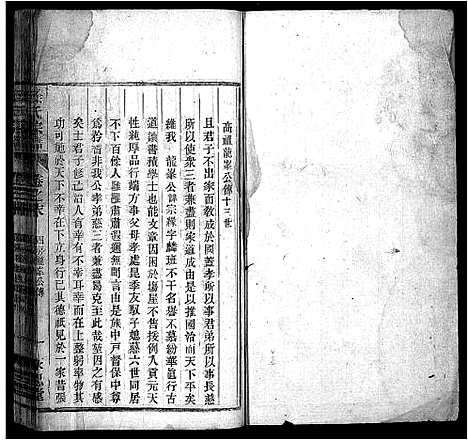 高祖龍峯公傳十三世
且君子不出家而敎成於國蓋孝所以事君弟所以事長慈
所以使衆三者兼盡則家道成由是推國治而天下平矣
維我 龍峯公諱宗 字麟班不干名譽不慕紛華直行古
道讀書積學士也能文章因困於塲屋不售援例入貢元天
性純厚品行端方事父母孝處昆季友馭子姪慈六世同居
不下百餘人雝雝肅肅遐邇無間言由是族中戶督保中尊
為矜耆非我公孝弟慈三者兼盡曷克至此哉堇因之有感
矣士君子修己治人有幸有不幸耳幸而在上整躬率物其
功可施於天下不幸在下立身行己其德祇見於一家昔張